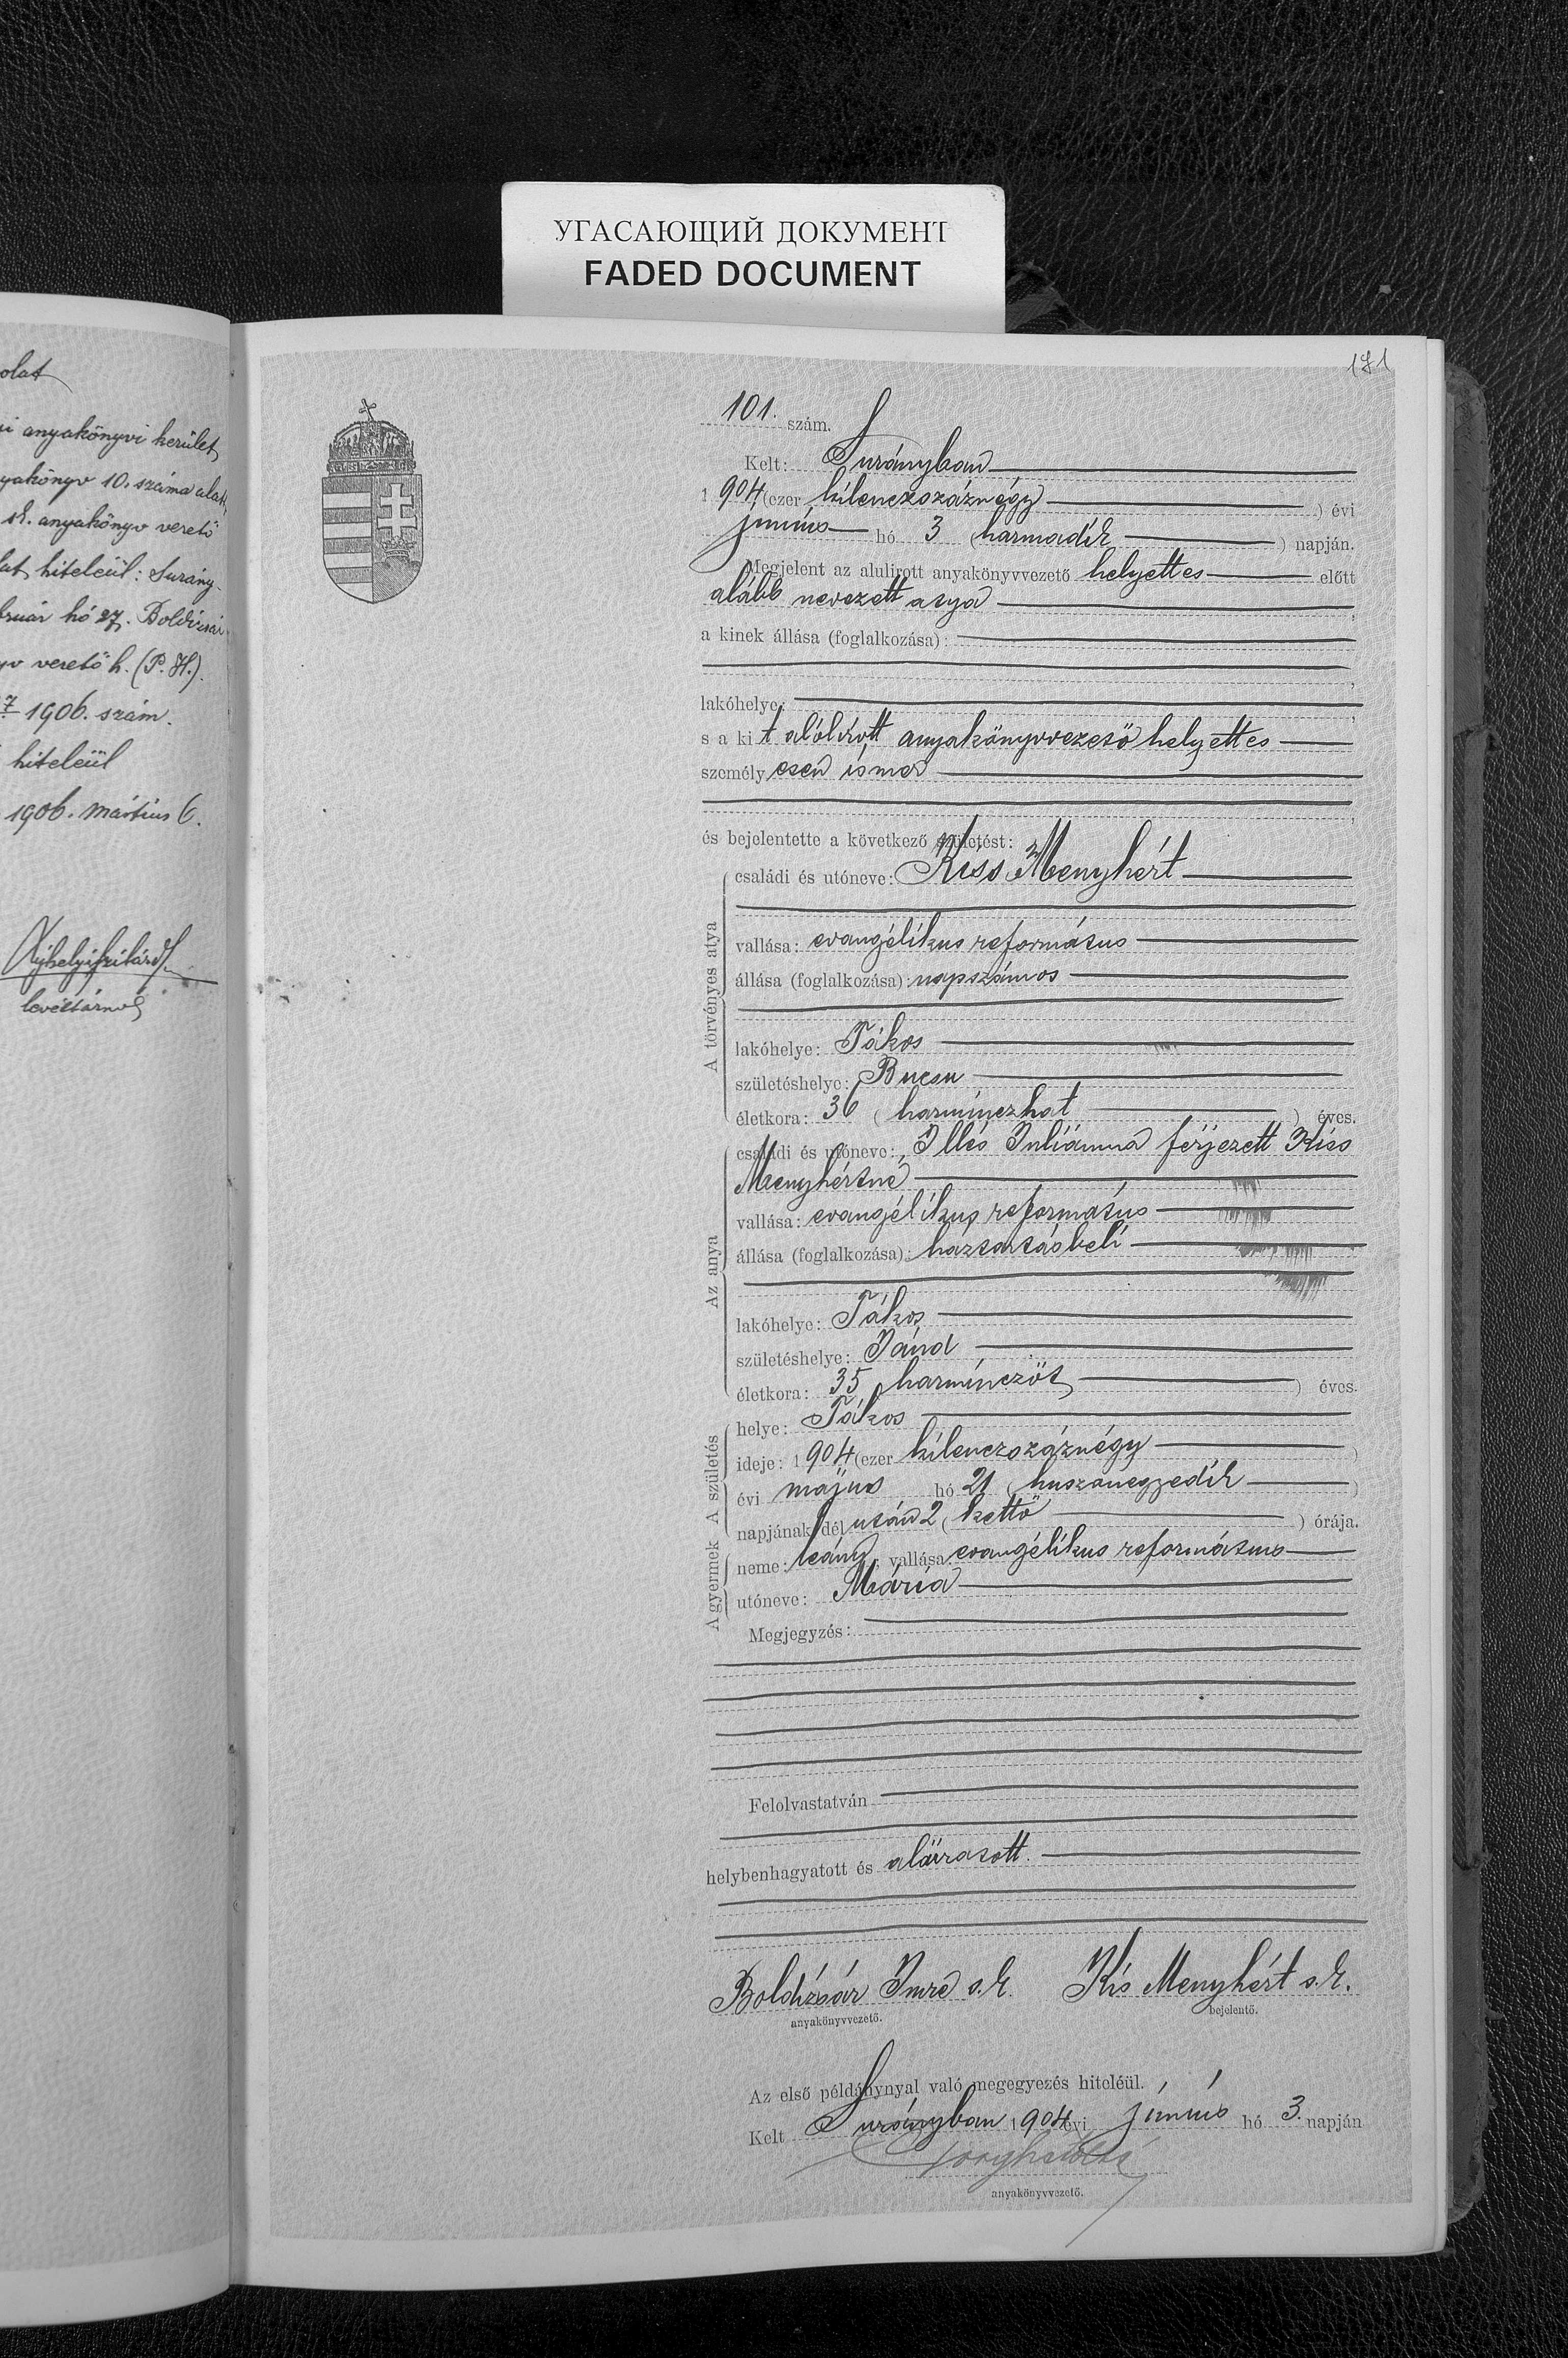 УГАСАЮЩИЙ ДОКУМЕНТ
FADED DOCUMENT
olat
i anyakönyvi kerület
yakönyv 10. száma alatt
sk. anyakönyv vezető
lat hiteléül: Surány-
bruár hó 27. Boldizsár
yv vezető h. (P. H.).
7 1906. szám.
hiteléül
1906. március 6.
levéltárnok
181
101. szám.
Kelt: Surányban
1904 (ezer kilenczszáznégy) évi
junius hó 3 (harmadik) napján.
Megjelent az alulirott anyakönyvvezető helyettes előtt
alább nevezett atya,
a kinek állása (foglalkozása):
lakóhelye:
s a kit alólírott anyakönyvvezető helyettes
személyesen ismer
és bejelentette a következő születést:
A törvényes atya
családi és utóneve: Kiss Menyhért
vallása: evangélikus református
állása (foglalkozása): napszámos
lakóhelye: Tákos
születéshelye: Bucsu
életkora: 36 (harminczhat) éves.
Az anya
családi és utóneve: Illés Juliánna férjezett Kiss
Menyhértné
vallása: evangélikus református
állása (foglalkozása): háztartásbeli
lakóhelye: Tákos
születéshelye: Jánd
életkora: 35 (harminczöt) éves.
A születés
helye: Tákos
ideje: 1904 (ezer kilenczszáznégy)
évi május hó 21 (huszonegyedik)
napjának dél után 2 (kettő) órája.
A gyermek
neme: leány, vallása evangélikus református
utóneve: Mária
Megjegyzés:
Felolvastatván
helybenhagyatott és aláiratott.
Boldizsár Imre s. k. Kis Menyhért s. k.
anyakönyvvezető. bejelentő.
Az első példánynyal való megegyezés hiteléül.
Kelt Surányban 1904 évi június hó 3. napján
anyakönyvvezető.